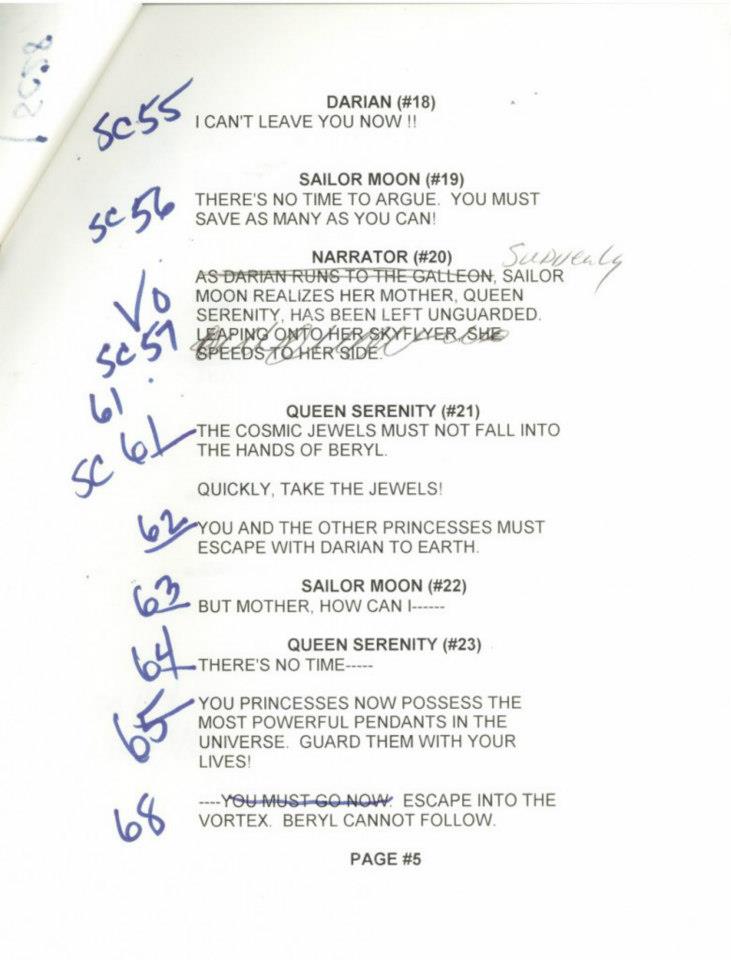 12058
DARIAN (#18)
SC55 I CAN'T LEAVE YOU NOW !!
SAILOR MOON (#19)
SC 56 THERE'S NO TIME TO ARGUE. YOU MUST
SAVE AS MANY AS YOU CAN!
NARRATOR (#20)
Suddenly
AS DARIAN RUNS TO THE GALLEON, SAILOR
VO MOON REALIZES HER MOTHER, QUEEN
SERENITY, HAS BEEN LEFT UNGUARDED.
SC 57 LEAPING ONTO HER SKYFLYER, SHE
SPEEDS TO HER SIDE.
61
QUEEN SERENITY (#21)
SC 61 THE COSMIC JEWELS MUST NOT FALL INTO
THE HANDS OF BERYL.
QUICKLY, TAKE THE JEWELS!
62 YOU AND THE OTHER PRINCESSES MUST
ESCAPE WITH DARIAN TO EARTH.
SAILOR MOON (#22)
63 BUT MOTHER, HOW CAN I------
QUEEN SERENITY (#23)
64 THERE'S NO TIME-----
65 YOU PRINCESSES NOW POSSESS THE
MOST POWERFUL PENDANTS IN THE
UNIVERSE. GUARD THEM WITH YOUR
LIVES!
68 ----YOU MUST GO NOW. ESCAPE INTO THE
VORTEX. BERYL CANNOT FOLLOW.
PAGE #5